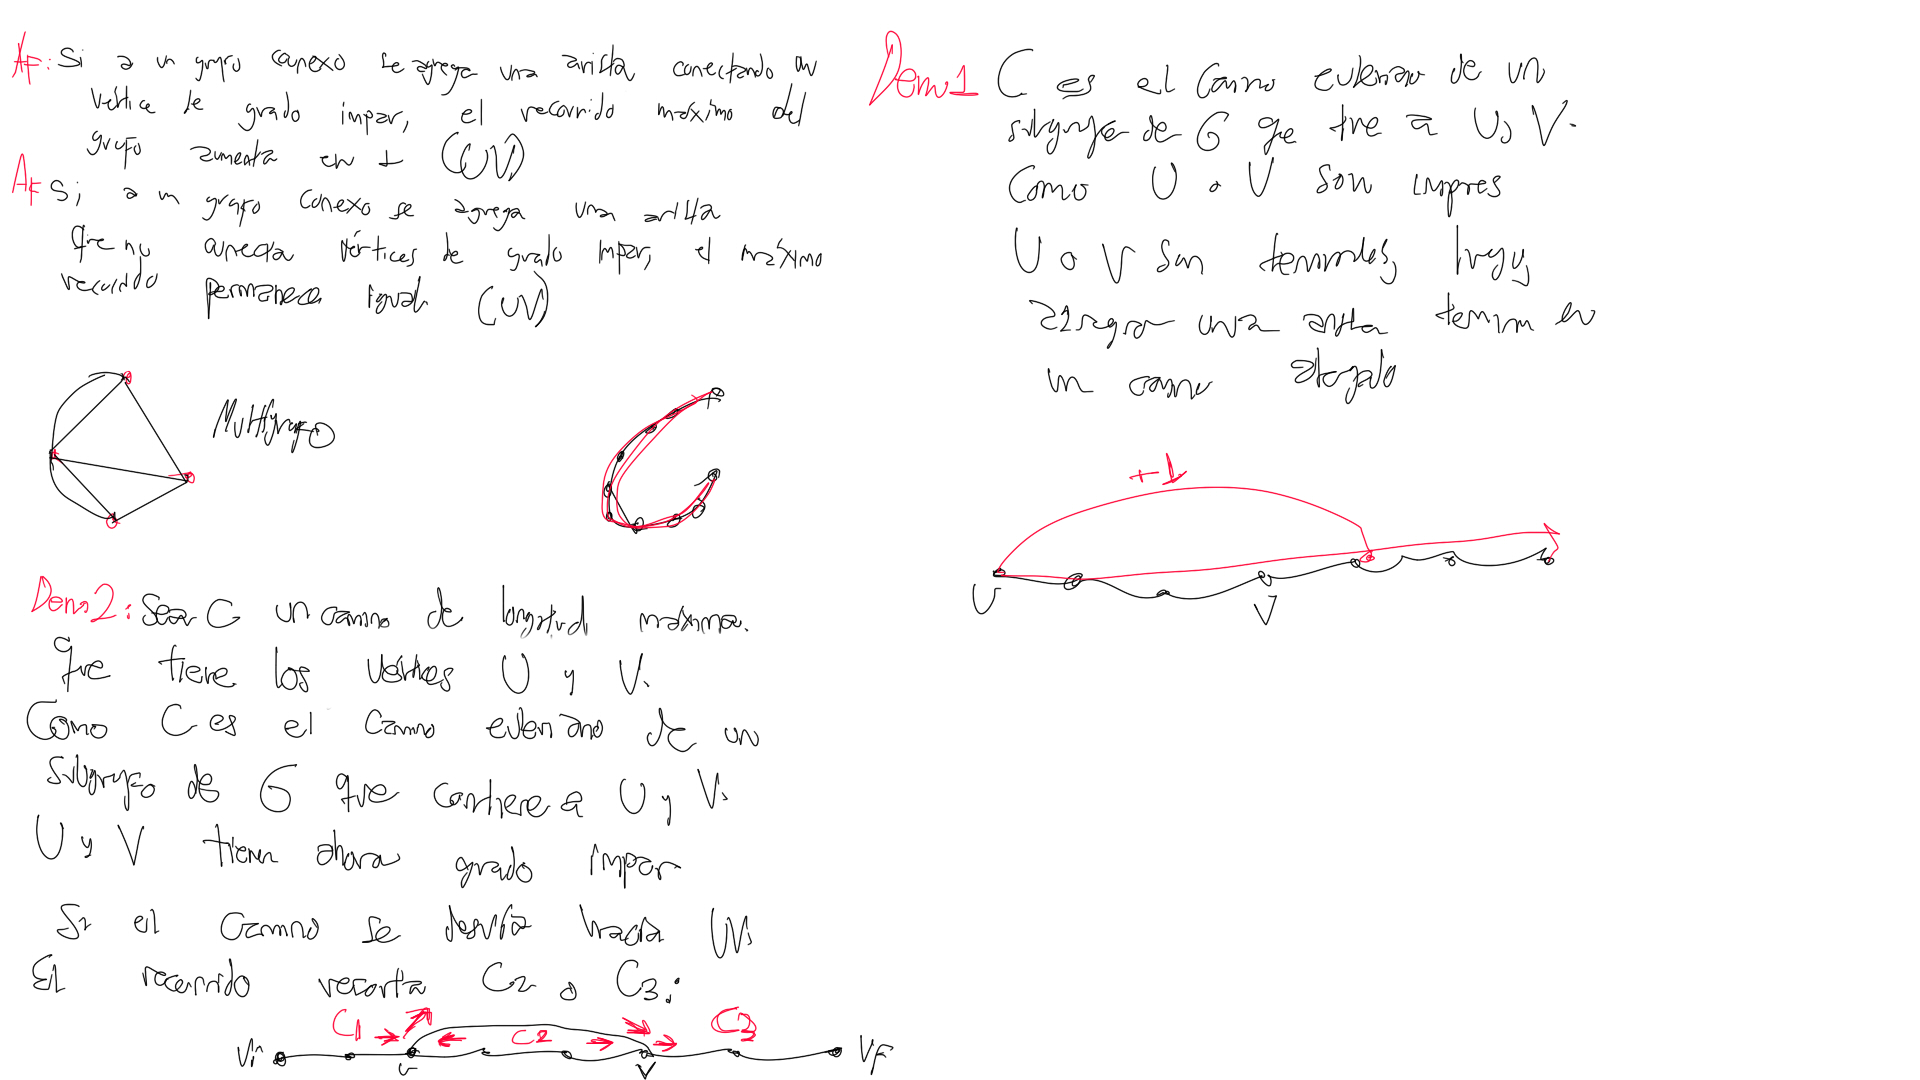 Af: Si a un grafo conexo se agrega una arista conectando un
vértice de grado impar, el recorrido máximo del
grafo aumenta en 1 (UV)
Af Si a un grafo conexo se agrega una arista
que no conecta vértices de grado impar, el máximo
recorrido permanece igual (UV)
Multigrafo
Dem2: Sea C un camino de longitud máxima.
que tiene los vértices U y V.
Como C es el camino euleriano de un
subgrafo de G que contiene a U y V.
U y V tienen ahora grado impar
Si el camino se desvía hacia UV.
El recorrido recorta C2 o C3:
C1 C2 C3
Vi U V Vf
Dem1 C es el camino euleriano de un
subgrafo de G que tiene a U, V.
Como U o V son impares
U o V son terminales, luego,
agregar una arista en
un camino alargado
+1
U V